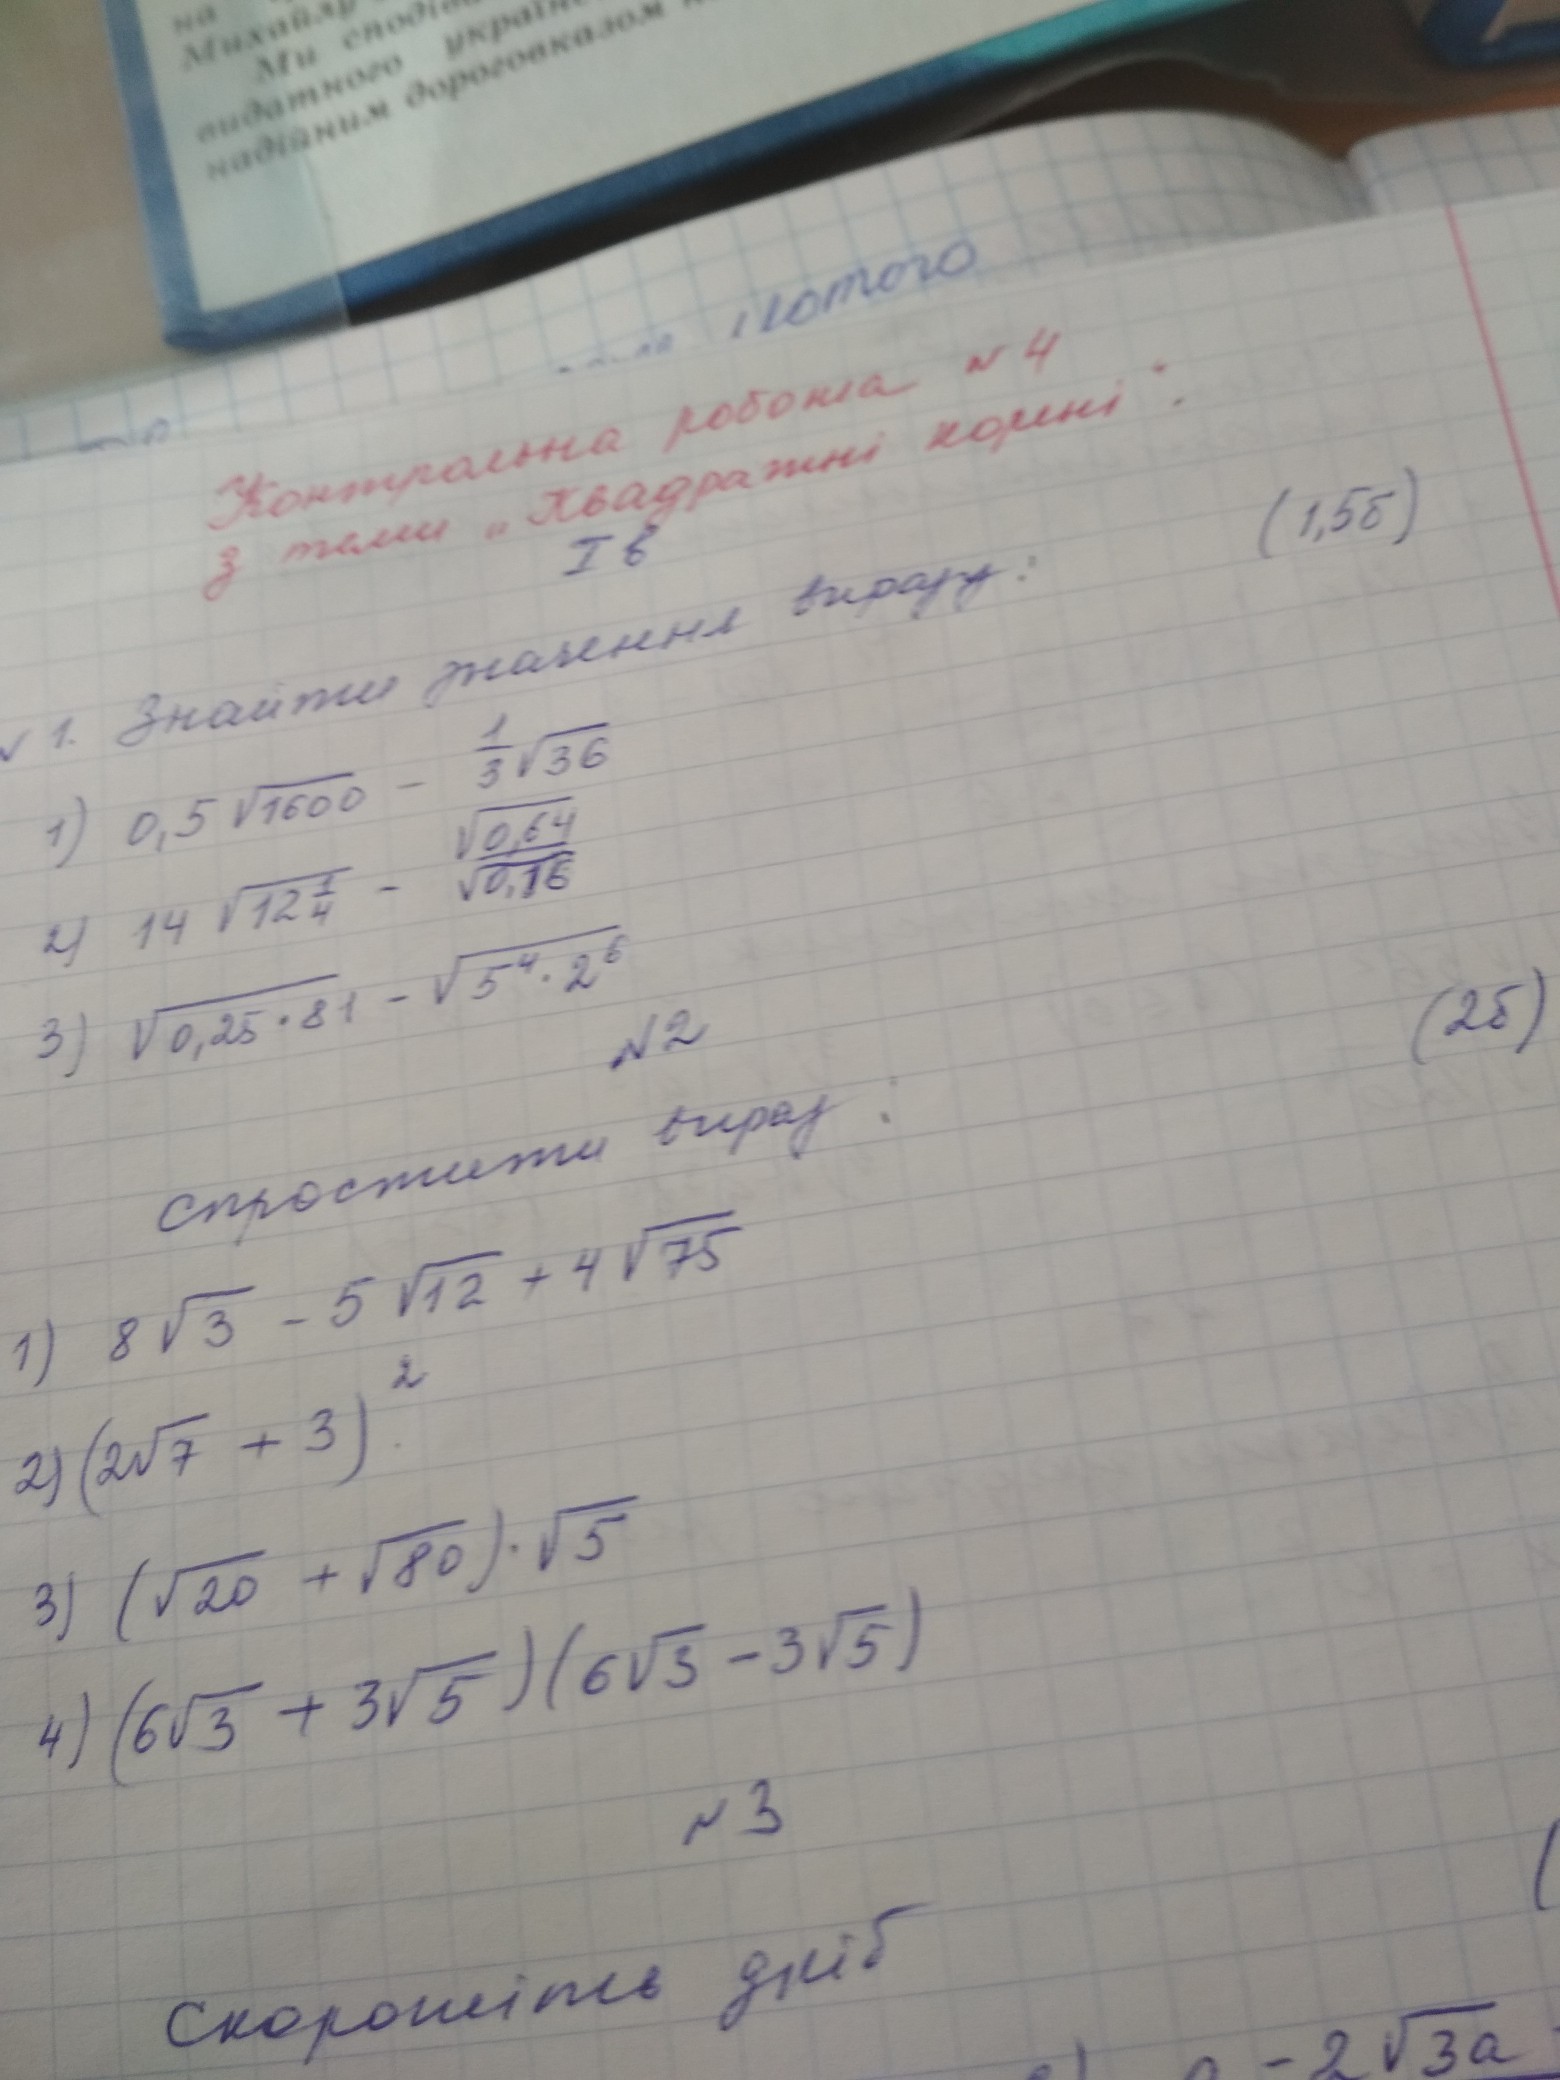 на
Михайл
Ми сподіва
видатного україн
надійним дороговказом н
лютого
Контрольна робота №4
з теми „Квадратні корені".
І в
№1. Знайти значення виразу: (1,5б)
1) 0,5√1600 - 1/3 √36
2) 14√12 1/4 - √0,64/√0,16
3) √0,25·81 - √5⁴·2⁶
№2 (2б)
Спростити вираз:
1) 8√3 - 5√12 + 4√75
2) (2√7 + 3)²
3) (√20 + √80)·√5
4) (6√3 + 3√5)(6√3 - 3√5)
№3
(
Скоротіть дріб
a - 2√3a